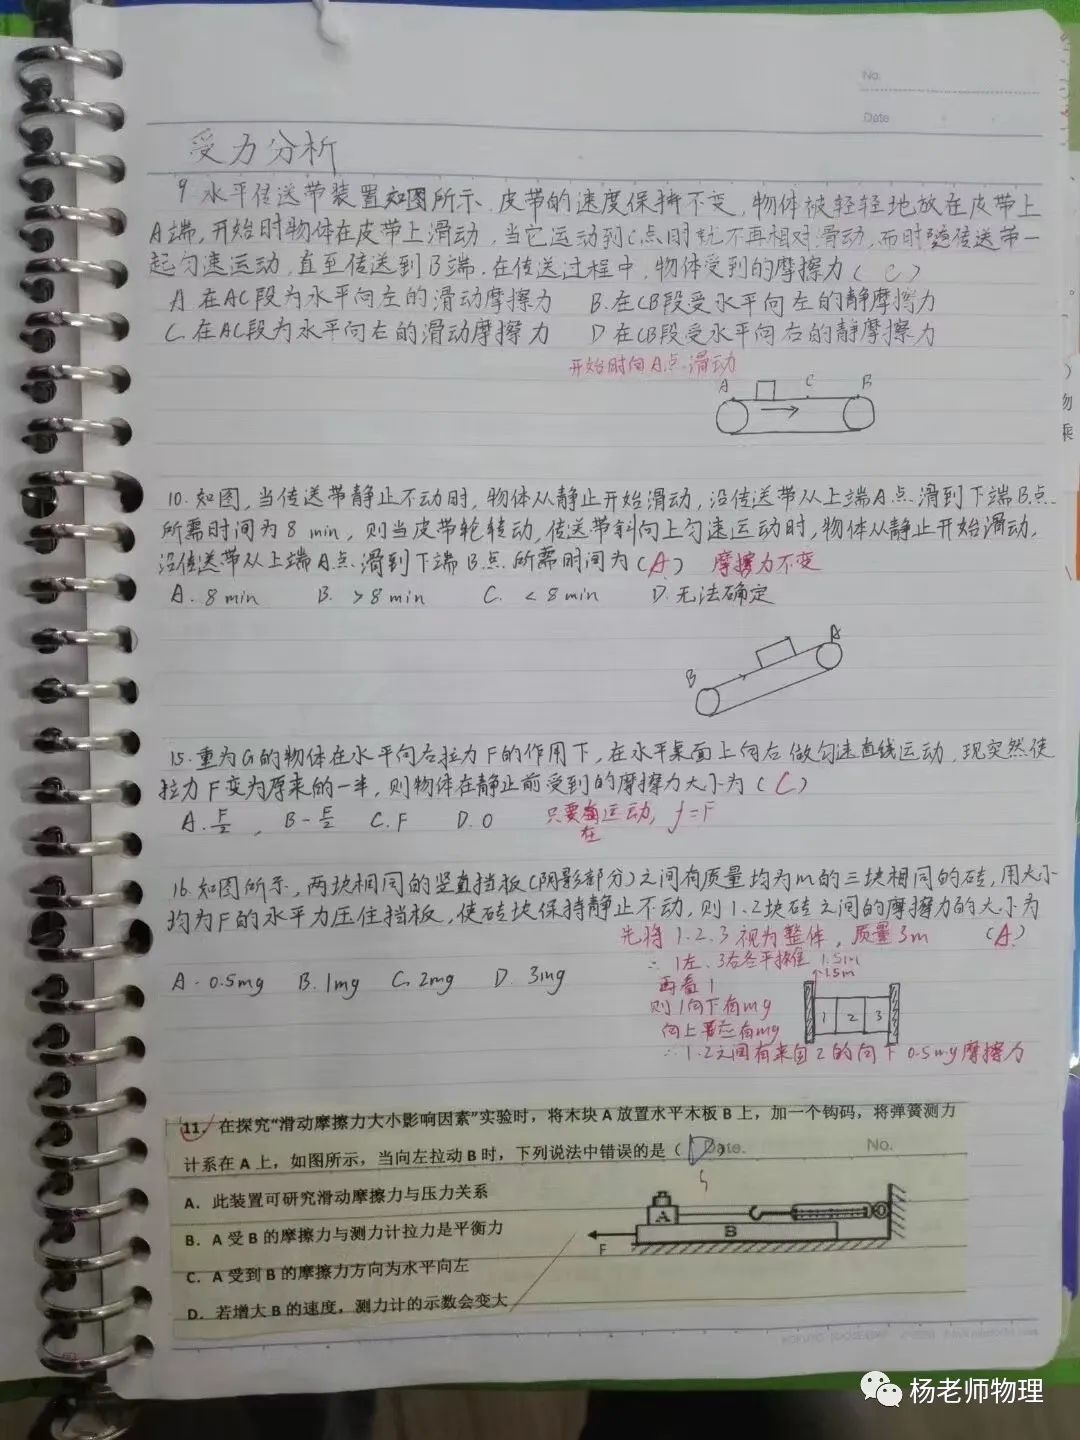 No.
Date
受力分析
9 水平传送带装置如图所示.皮带的速度保持不变,物体被轻轻地放在皮带上
A端,开始时物体在皮带上滑动,当它运动到C点时就不再相对滑动,而时随传送带一
起匀速运动,直至传送到B端.在传送过程中,物体受到的摩擦力(C)
A.在AC段为水平向左的滑动摩擦力 B.在CB段受水平向左的静摩擦力
C.在AC段为水平向右的滑动摩擦力 D 在CB段受水平向右的静摩擦力
开始时向A点滑动
A C B
10.如图,当传送带静止不动时,物体从静止开始滑动,沿传送带从上端A点滑到下端B点
所需时间为8 min,则当皮带轮转动,传送带斜向上匀速运动时,物体从静止开始滑动,
沿传送带从上端A点滑到下端B点所需时间为(A) 摩擦力不变
A.8min B.>8min C.<8min D.无法确定
A
B
15.重为G的物体在水平向右拉力F的作用下,在水平桌面上向右做匀速直线运动,现突然使
拉力F变为原来的一半,则物体在静止前受到的摩擦力大小为(C)
A.F/2 , B-F/2 C.F D.0 只要在运动,f=F
16.如图所示,两块相同的竖直挡板(阴影部分)之间有质量均为m的三块相同的砖,用大小
均为F的水平力压住挡板,使砖块保持静止不动,则1.2块砖之间的摩擦力的大小为
先将1.2.3视为整体,质量3m (A)
∴1左、3右各平摊 1.5m
A.0.5mg B.1mg C.2mg D.3mg
再看1
↑1.5m
则1向下有mg
1 2 3
向上有mg
∴1.2之间有来自2的向下0.5mg摩擦力
11.在探究“滑动摩擦力大小影响因素”实验时,将木块A放置水平木板B上,加一个钩码,将弹簧测力
计系在A上,如图所示,当向左拉动B时,下列说法中错误的是(D)
Date. No.
A.此装置可研究滑动摩擦力与压力关系
B.A受B的摩擦力与测力计拉力是平衡力
C.A受到B的摩擦力方向为水平向左
D.若增大B的速度,测力计的示数会变大
A
B
F
杨老师物理